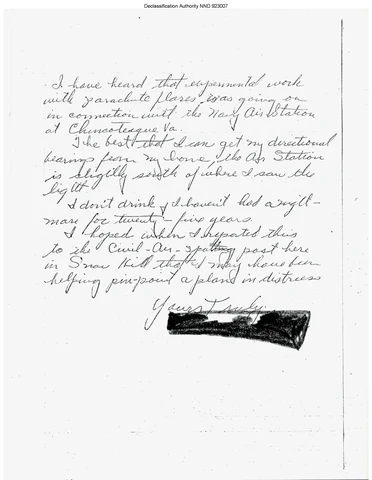 Declassification Authority NND 923007
I have heard that experimental work
with parachute flares was going on
in connection with the Navy Air Station
at Chincoteague Va.
The best that I can get my directional
bearings from my home, the Air Station
is slightly south of where I saw the
light.
I don't drink & I haven't had a night-
mare for twenty-five years
I hoped when I reported this
to the Civil-Air-Spotting post here
in Snow Hill that I may have been
helping pin-point a plane in distress
Yours Truly